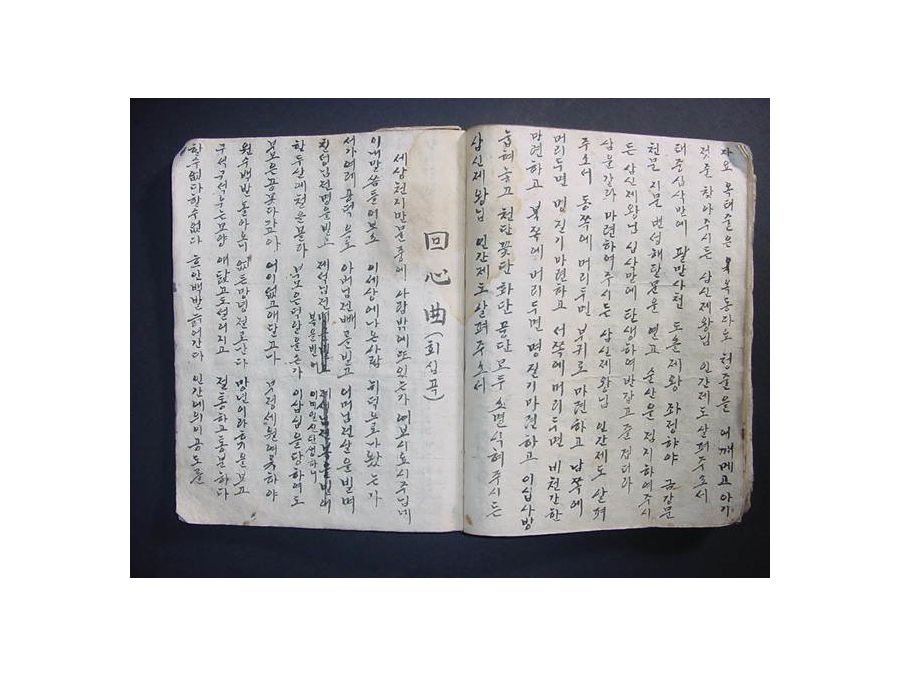 자모 목태줄은 목동다로 청줄을 어깨메고 아기
젓줄 찾아주시든 삼신제왕님 인간제도 살펴주소서
태중십삭만에 팔만사천 도솔제왕 좌정하야 금강문
천문 지문 번성해탈문을 열고 순산을 점지하여주시
든 삼신제왕님 십삭만에 탄생하여 받값고 준 점더라
삼을갈라 마련하여주시는 삼신제왕님 인간제도 살펴
주소서 동쪽에 머리두면 부귀로 마련하고 남쪽에
머리두면 명길기마련하고 서쪽에 머리두면 비천간한
마련하고 북쪽에 머리두면 명길기 마련하고 이십사방
눕혀놓고 천단 꽃단 화단 문단 모두 소면식혀주시든
삼신제왕님 인간제도살펴주소서
回心曲 (회심곡)
세상천지만문중에 사람밖에 또있는가 여보시요시주님네
이내말씀들어보소 이세상에나온사람 뉘덕으로나왔는가
서가여래 공덕으로 아버님전뼈를빌고 어머님전살을빌며
칠성님전명을빌고 제석님전 복을빌어
이내일신탄생하니
한두살에철을몰라 부모은덕알을손가 이삼십을당하여도
부모은공못다갚아 어이없고애달고나 무정세월여류하야
원수백발돌아오니 없든망녕전로난다 망년이라흉을보고
구석구석웃는모양 애닲고도설어지고 절통하고통분하다
할수없다할수없다 호안백발늙어간다 인간에의이공도를